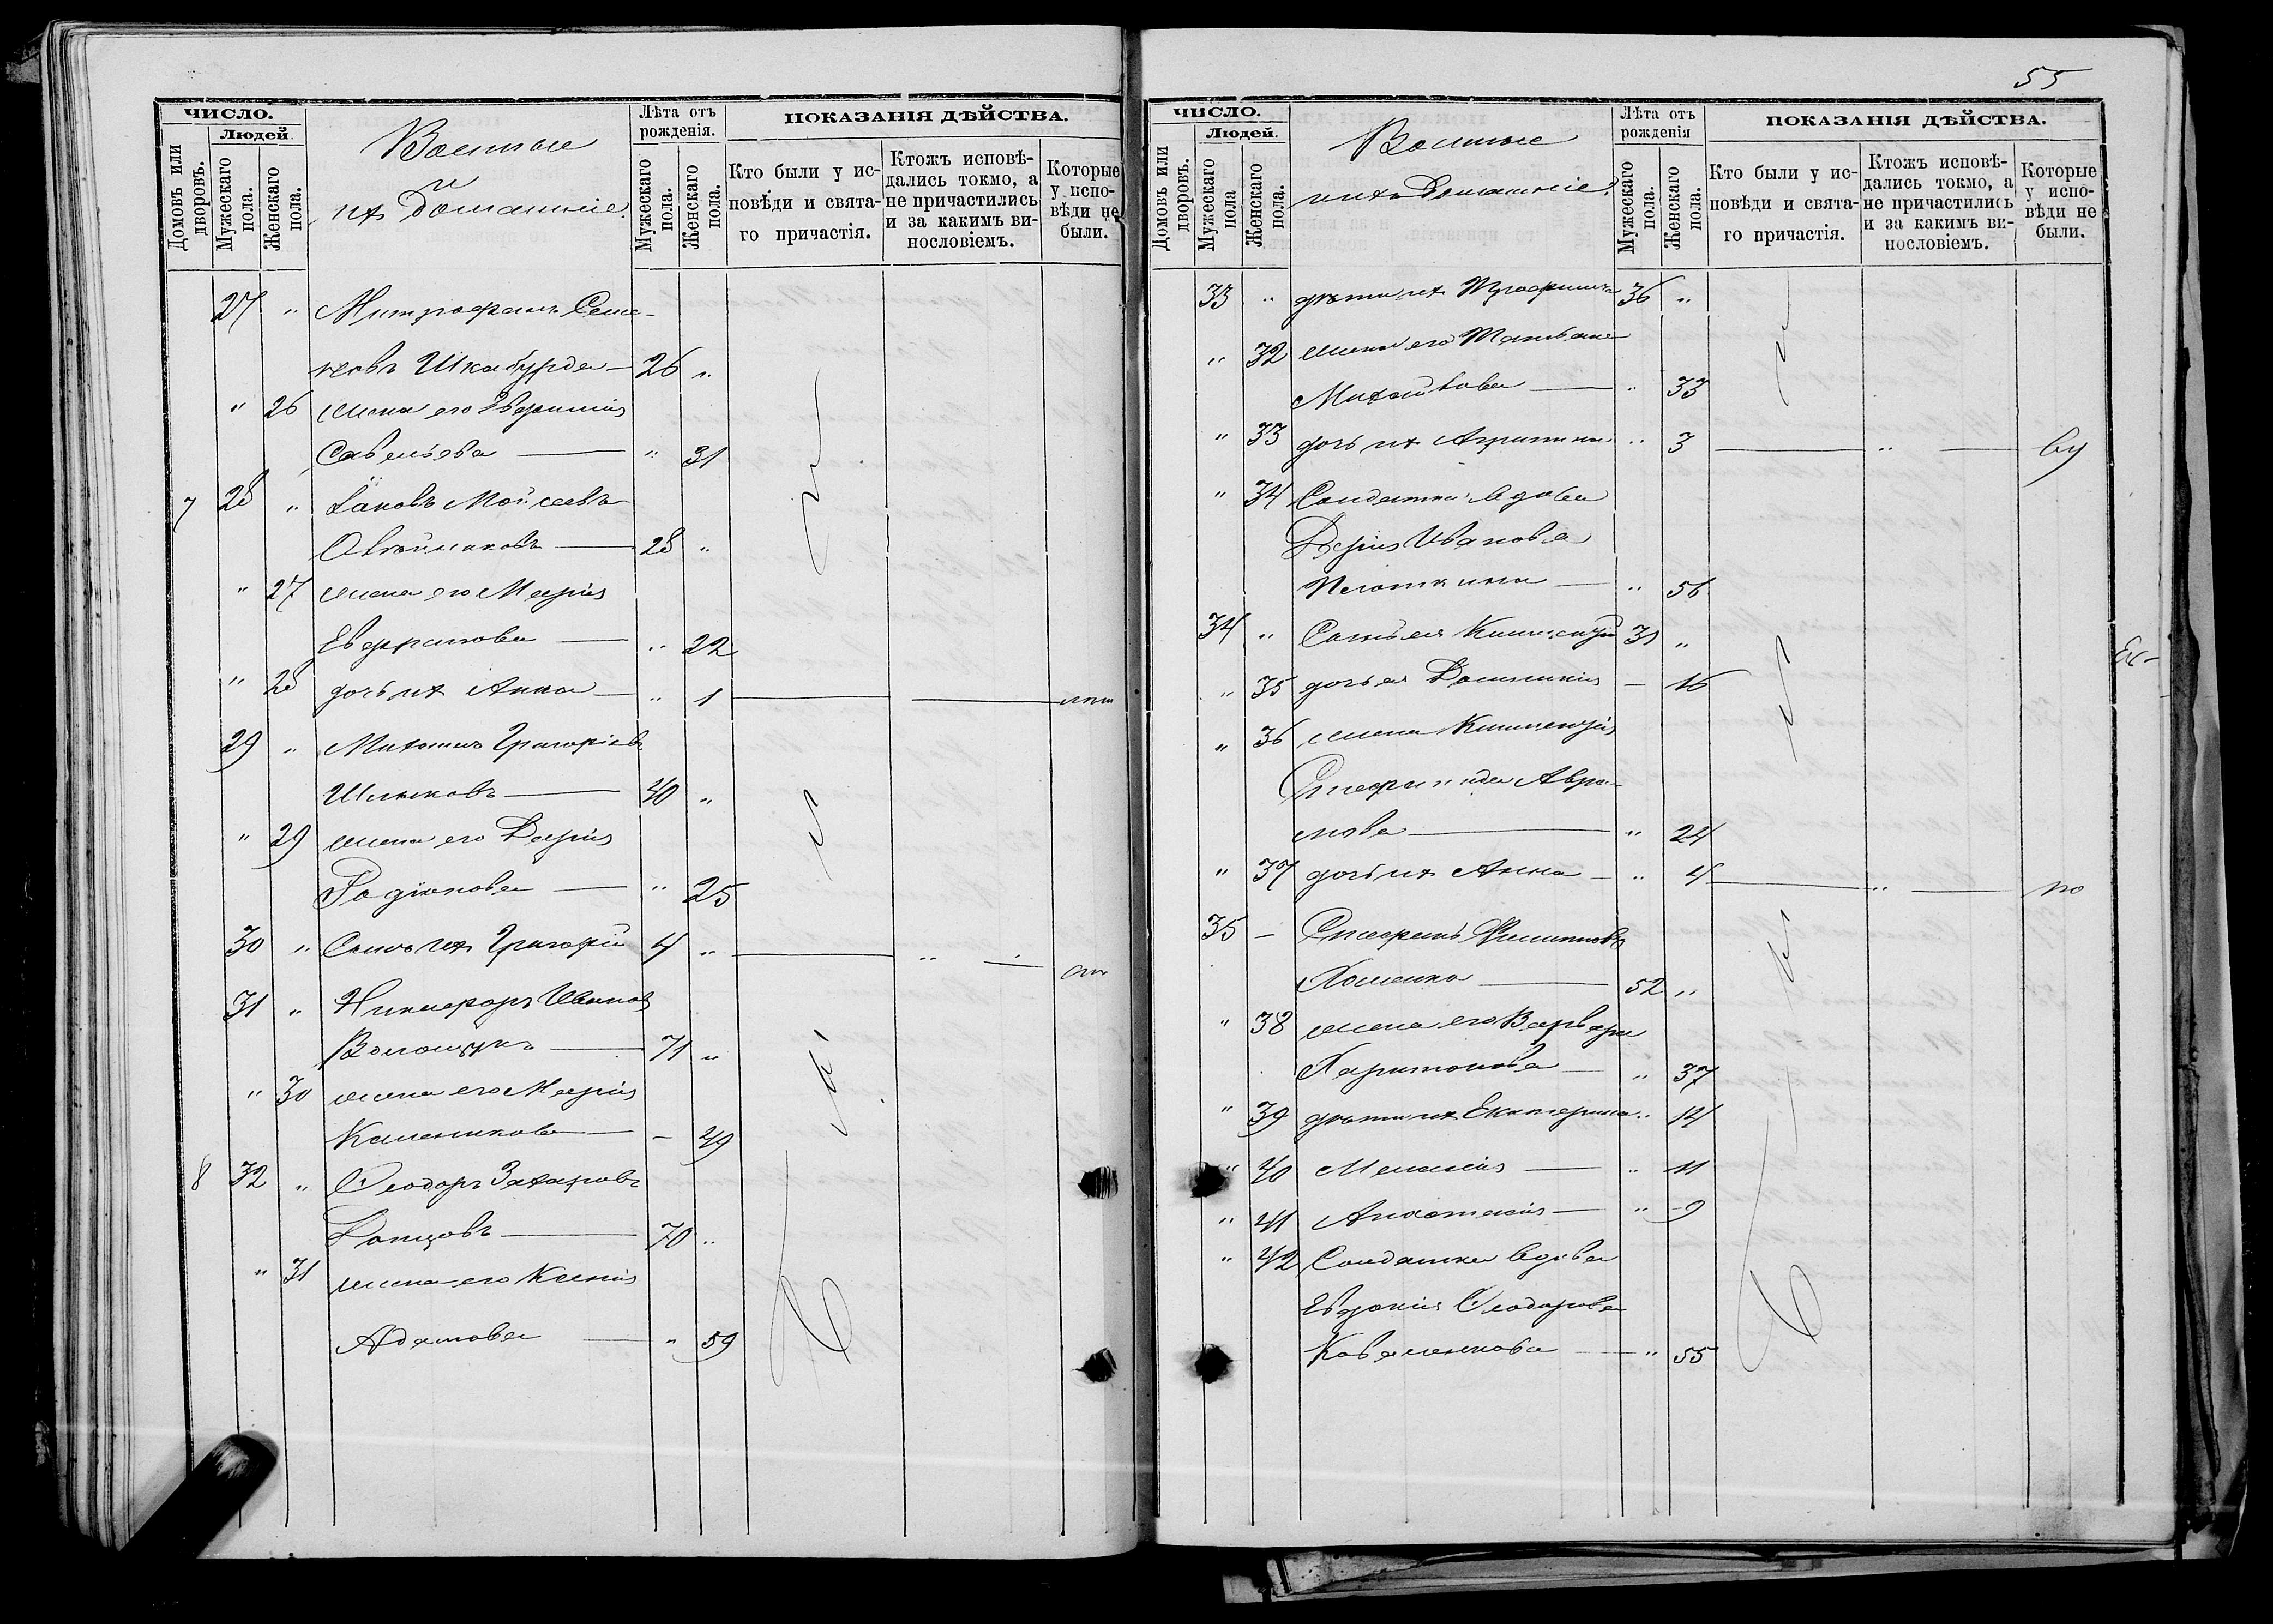 55
ЧИСЛО.
Людей.
Домовъ или дворовъ.
Мужескаго пола.
Женскаго пола.
Военные
и
ихъ домашніе.
Лѣта отъ рожденія.
Мужескаго пола.
Женскаго пола.
ПОКАЗАНІЯ ДѢЙСТВА.
Кто были у исповѣди и святаго причастія.
Ктожъ исповѣдались токмо, а не причастились и за какимъ винословіемъ.
Которые у исповѣди не были.
27 " Митрофанъ Семе-
новъ Шкабурда — 26 "
" 26 жена его Евфимія
Савельева — " 31
7 28 " Іаковъ Мойсеевъ
28 "
" 27 жена его Марія
" 22
" 28 дочь ихъ Анна — " 1
29 " Михаилъ Григорьевъ
40 "
" 29 жена его Дарія
Родіонова — " 25
30 " Сынъ ихъ Григорій 4 "
31 " Никифоръ Ивановъ
Волощукъ — 71 "
" 30 жена его Марія
Каленикова — — 49
8 32 " Ѳеодоръ Захаровъ
Донцовъ — 70 "
" 31 жена его Ксенія
Адамова — " 59
ЧИСЛО.
Людей.
Домовъ или дворовъ.
Мужескаго пола
Женскаго пола.
Военные
и ихъ Домашніе.
Лѣта отъ рожденія
Мужескаго пола.
Женскаго пола.
ПОКАЗАНІЯ ДѢЙСТВА.
Кто были у исповѣди и святаго причастія.
Ктожъ исповѣдались токмо, а не причастились и за какимъ винословіемъ.
Которые у исповѣди не были.
33 " дѣти ихъ Трофимъ 36 "
" 32 жена его Татіана
Михайлова — " 33
" 33 дочь ихъ " 3
" 34 Солдатка вдова
Дарія Иванова
Плоткина — " 56
34 " Сынъ ея 31 "
" 35 дочь ея Домникія — 16
" 36 жена
Стефанида Авра-
мова — " 24
" 37 дочь ихъ Анна — " 4
35 — Стефанъ Филипповъ
Хоменко — 52 "
" 38 жена его Варвара
Харитонова — " 37
" 39 дѣти ихъ Екатерина " 14
" 40 Меланія — " 11
" 41 Анастасія — " 9
" 42 Солдатка вдова
Евдокія Ѳеодорова
Коваленкова — " 55